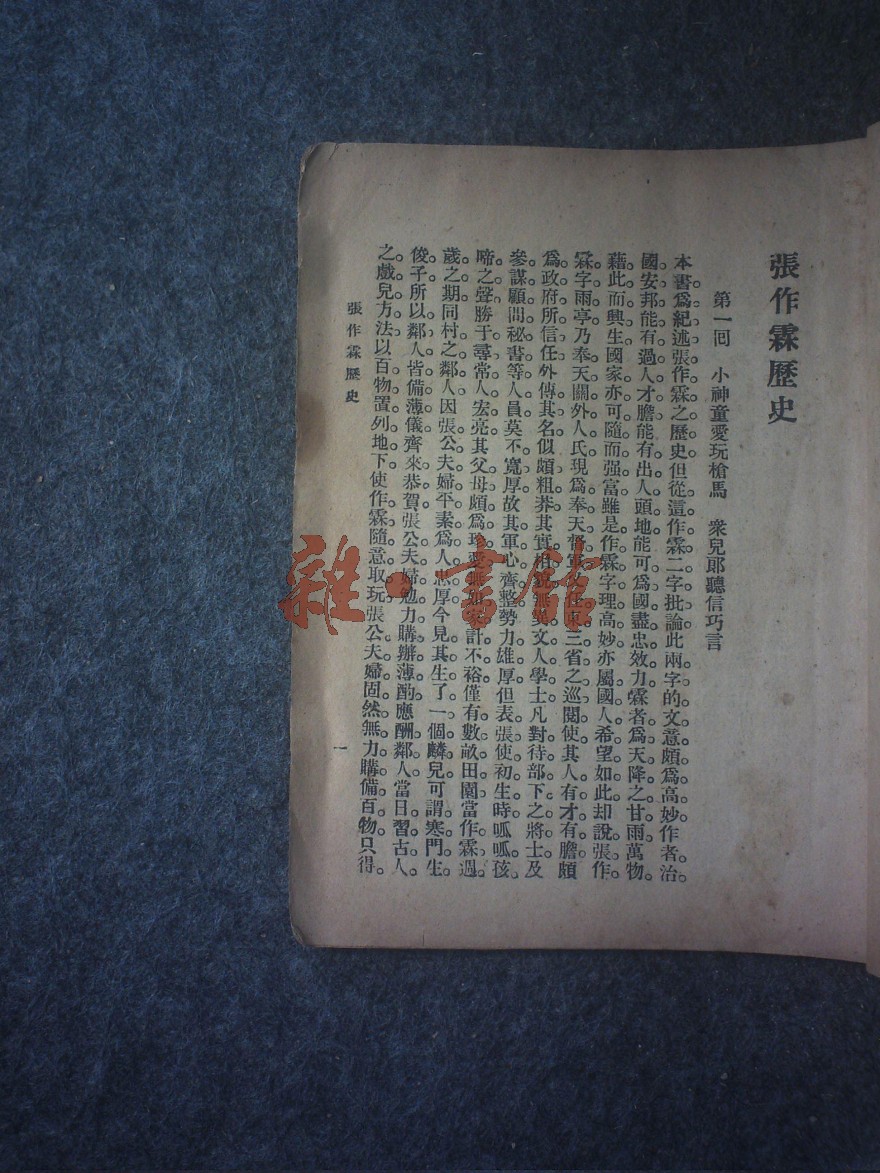 張作霖歷史
第一回　小神童愛玩槍馬　衆兒耶聽信巧言
本書爲紀述張作霖之歷史但從這作霖二字批論此兩字的文意頗爲高妙作者治。
國安邦能有過人才膽能有出人頭地能可爲國盡忠效力霖者爲天降之甘雨萬物。
藉此而興生國家亦可隨而强富雖是作霖字理高妙亦屬國人希望如此却說張作。
霖字雨亭乃奉天關外人氏現爲奉天督軍又任東三省之巡閱使其人有才有膽頗
爲政府所信任外傳其名似頗粗莽其實相貌無異文人學士凡對待部下之將士及
參謀顧問秘書等人員莫不寬厚故其軍心齊整勢力雄厚但表張使初生時呱呱孩
啼之聲勝于尋常人宏亮其父母頗爲珍愛無如家計不裕僅有數畝田園當作霖過。
歲之期同村之鄰人因張公夫婦平素爲人忠厚今見其生了一個麟兒可謂寒門生
俊子所以鄰人皆備薄儀齊來恭賀張公夫婦勉力購辦薄酌應酬鄰人當日習古人。
之戲兒方法以百物置列地下使作霖隨意取玩張公夫婦固然無力購備百物只得。
張作霖歷史
一
雜·書館